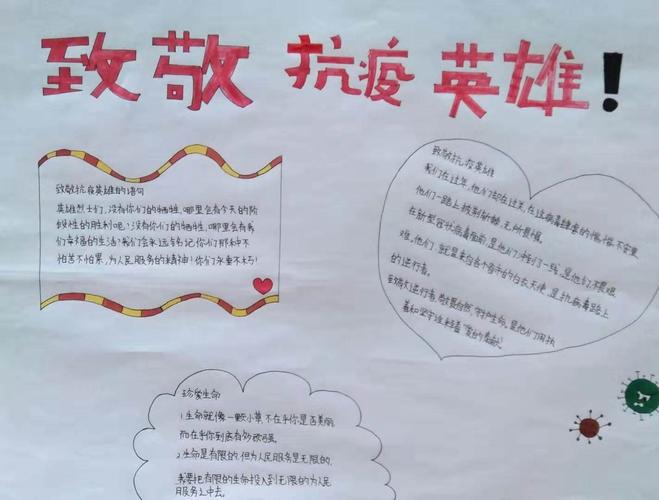 致敬 抗疫 英雄！
致敬抗疫英雄的语句
英雄烈士们，没有你们的牺牲，哪里会有今天的阶
段性的胜利呢？没有你们的牺牲，哪里会有我
们幸福的生活？我们会永远铭记你们那种不
怕苦不怕累，为人民服务的精神！你们永垂不朽！
致敬抗疫英雄
我们在过年，他们却在过关，在这病毒肆虐的
他们一路上披荆斩棘，无所畏惧。
在新型冠状病毒面前，是他们冲在一线，是他们不畏艰
难，他们就是来自各个省市的白衣天使，是抗病毒路上
的逆行者。
致敬逆行者，敬畏自然，守护生命。是他们用执
着和坚守诠释着"爱的奉献"
珍爱生命
1.生命就像一颗小草，不在乎你是否美丽
而在乎你到底有多顽强。
2.生命是有限的，但为人民服务是无限的，
我要把有限的生命投入到无限的为人民
服务之中去。